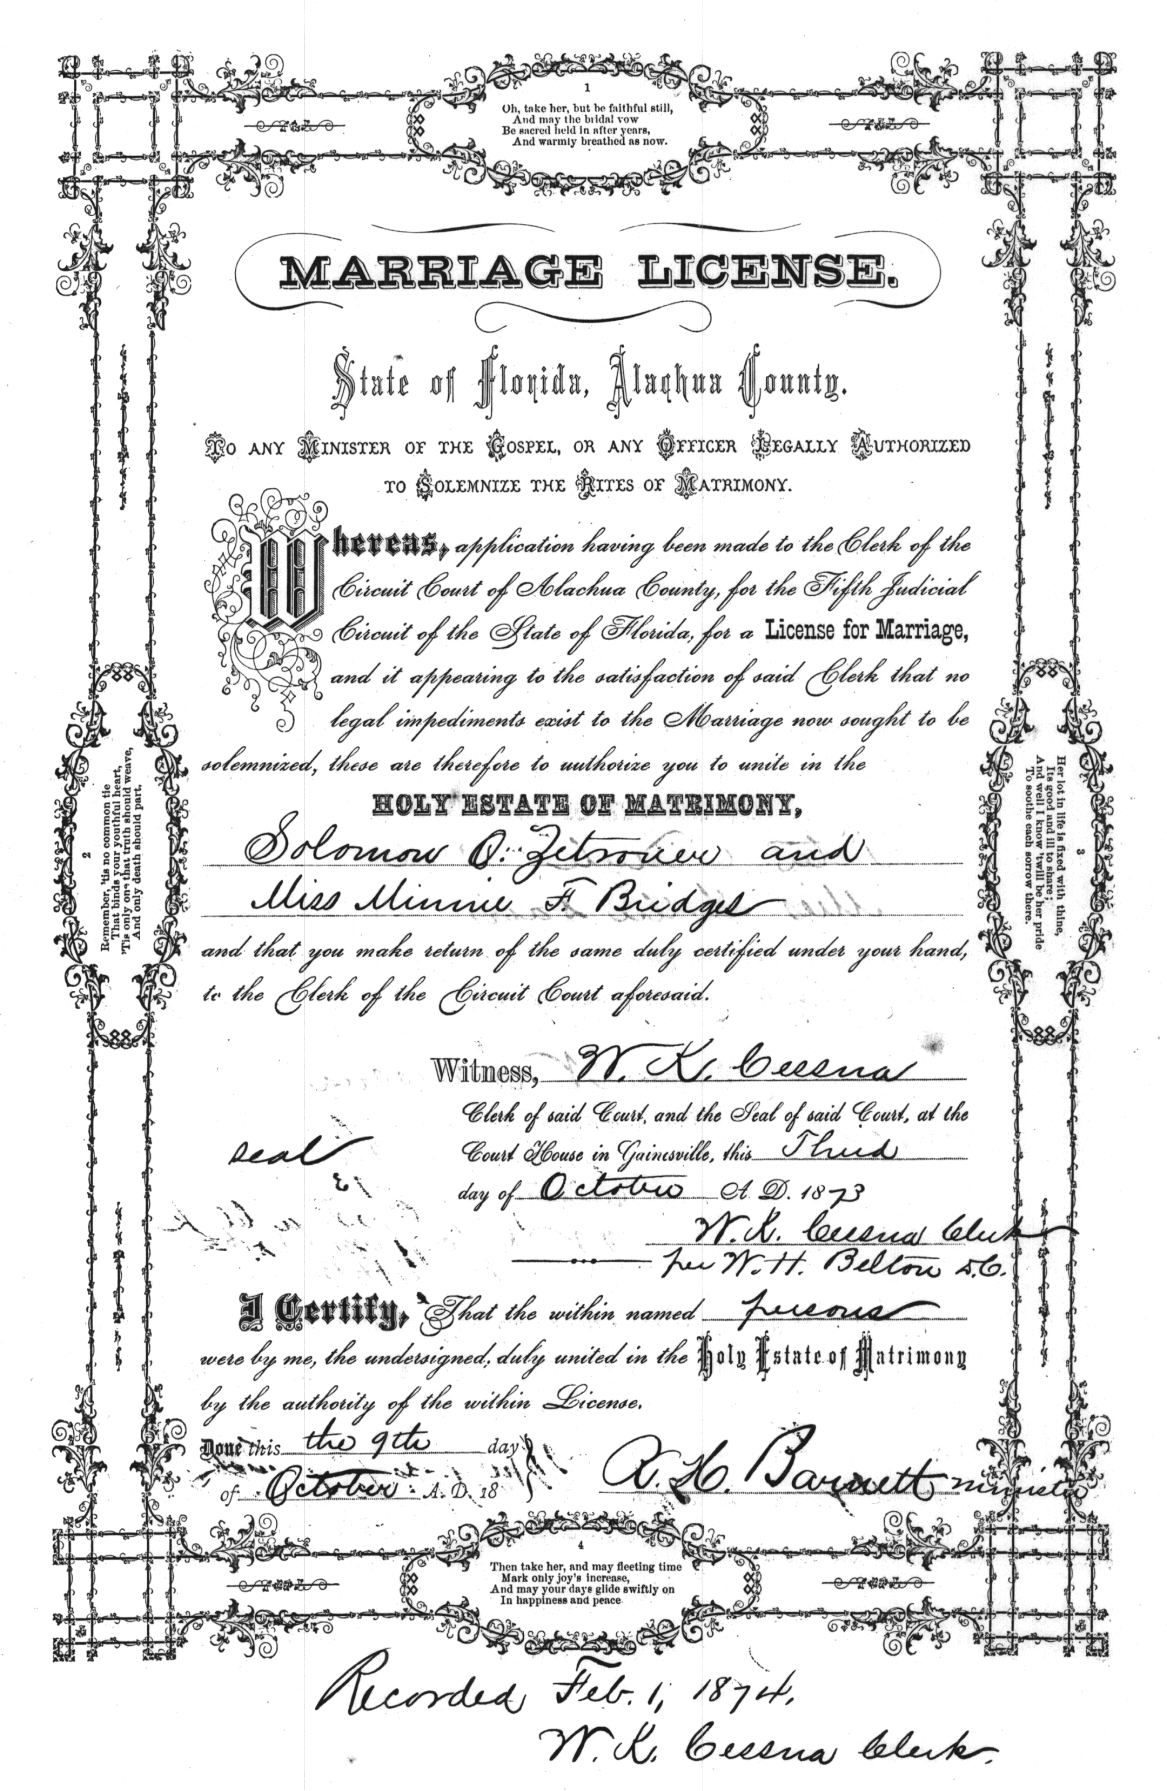 1
Oh, take her, but be faithful still,
And may the bridal vow
Be sacred held in after years,
And warmly breathed as now.
MARRIAGE LICENSE.
State of Florida, Alachua County.
TO ANY MINISTER OF THE GOSPEL, OR ANY OFFICER LEGALLY AUTHORIZED
TO SOLEMNIZE THE RITES OF MATRIMONY.
Whereas, application having been made to the Clerk of the
Circuit Court of Alachua County, for the Fifth Judicial
Circuit of the State of Florida, for a License for Marriage,
and it appearing to the satisfaction of said Clerk that no
legal impediments exist to the Marriage now sought to be
solemnized, these are therefore to authorize you to unite in the
HOLY ESTATE OF MATRIMONY,
Solomon O. Zetrouer and
Miss Minnie F. Bridges
and that you make return of the same duly certified under your hand,
to the Clerk of the Circuit Court aforesaid.
Witness, W. K. Cessna
Clerk of said Court, and the Seal of said Court, at the
seal
Court House in Gainesville, this Third
day of October A. D. 1873
W. K. Cessna Clerk
per W. H. Belton D.C.
I Certify, That the within named persons
were by me, the undersigned, duly united in the Holy Estate of Matrimony
by the authority of the within License.
Done this the 9th day
of October A. D. 18
Barnett, minister
2
Remember, 'tis no common tie
That binds your youthful heart,
'Tis only one that truth should weave,
And only death should part.
3
Her lot in life is fixed with thine,
Its good and ill to share;
And well I know 'twill be her pride
To soothe each sorrow there.
4
Then take her, and may fleeting time
Mark only joy's increase,
And may your days glide swiftly on
In happiness and peace
Recorded Feb. 1, 1874.
W. K. Cessna Clerk.